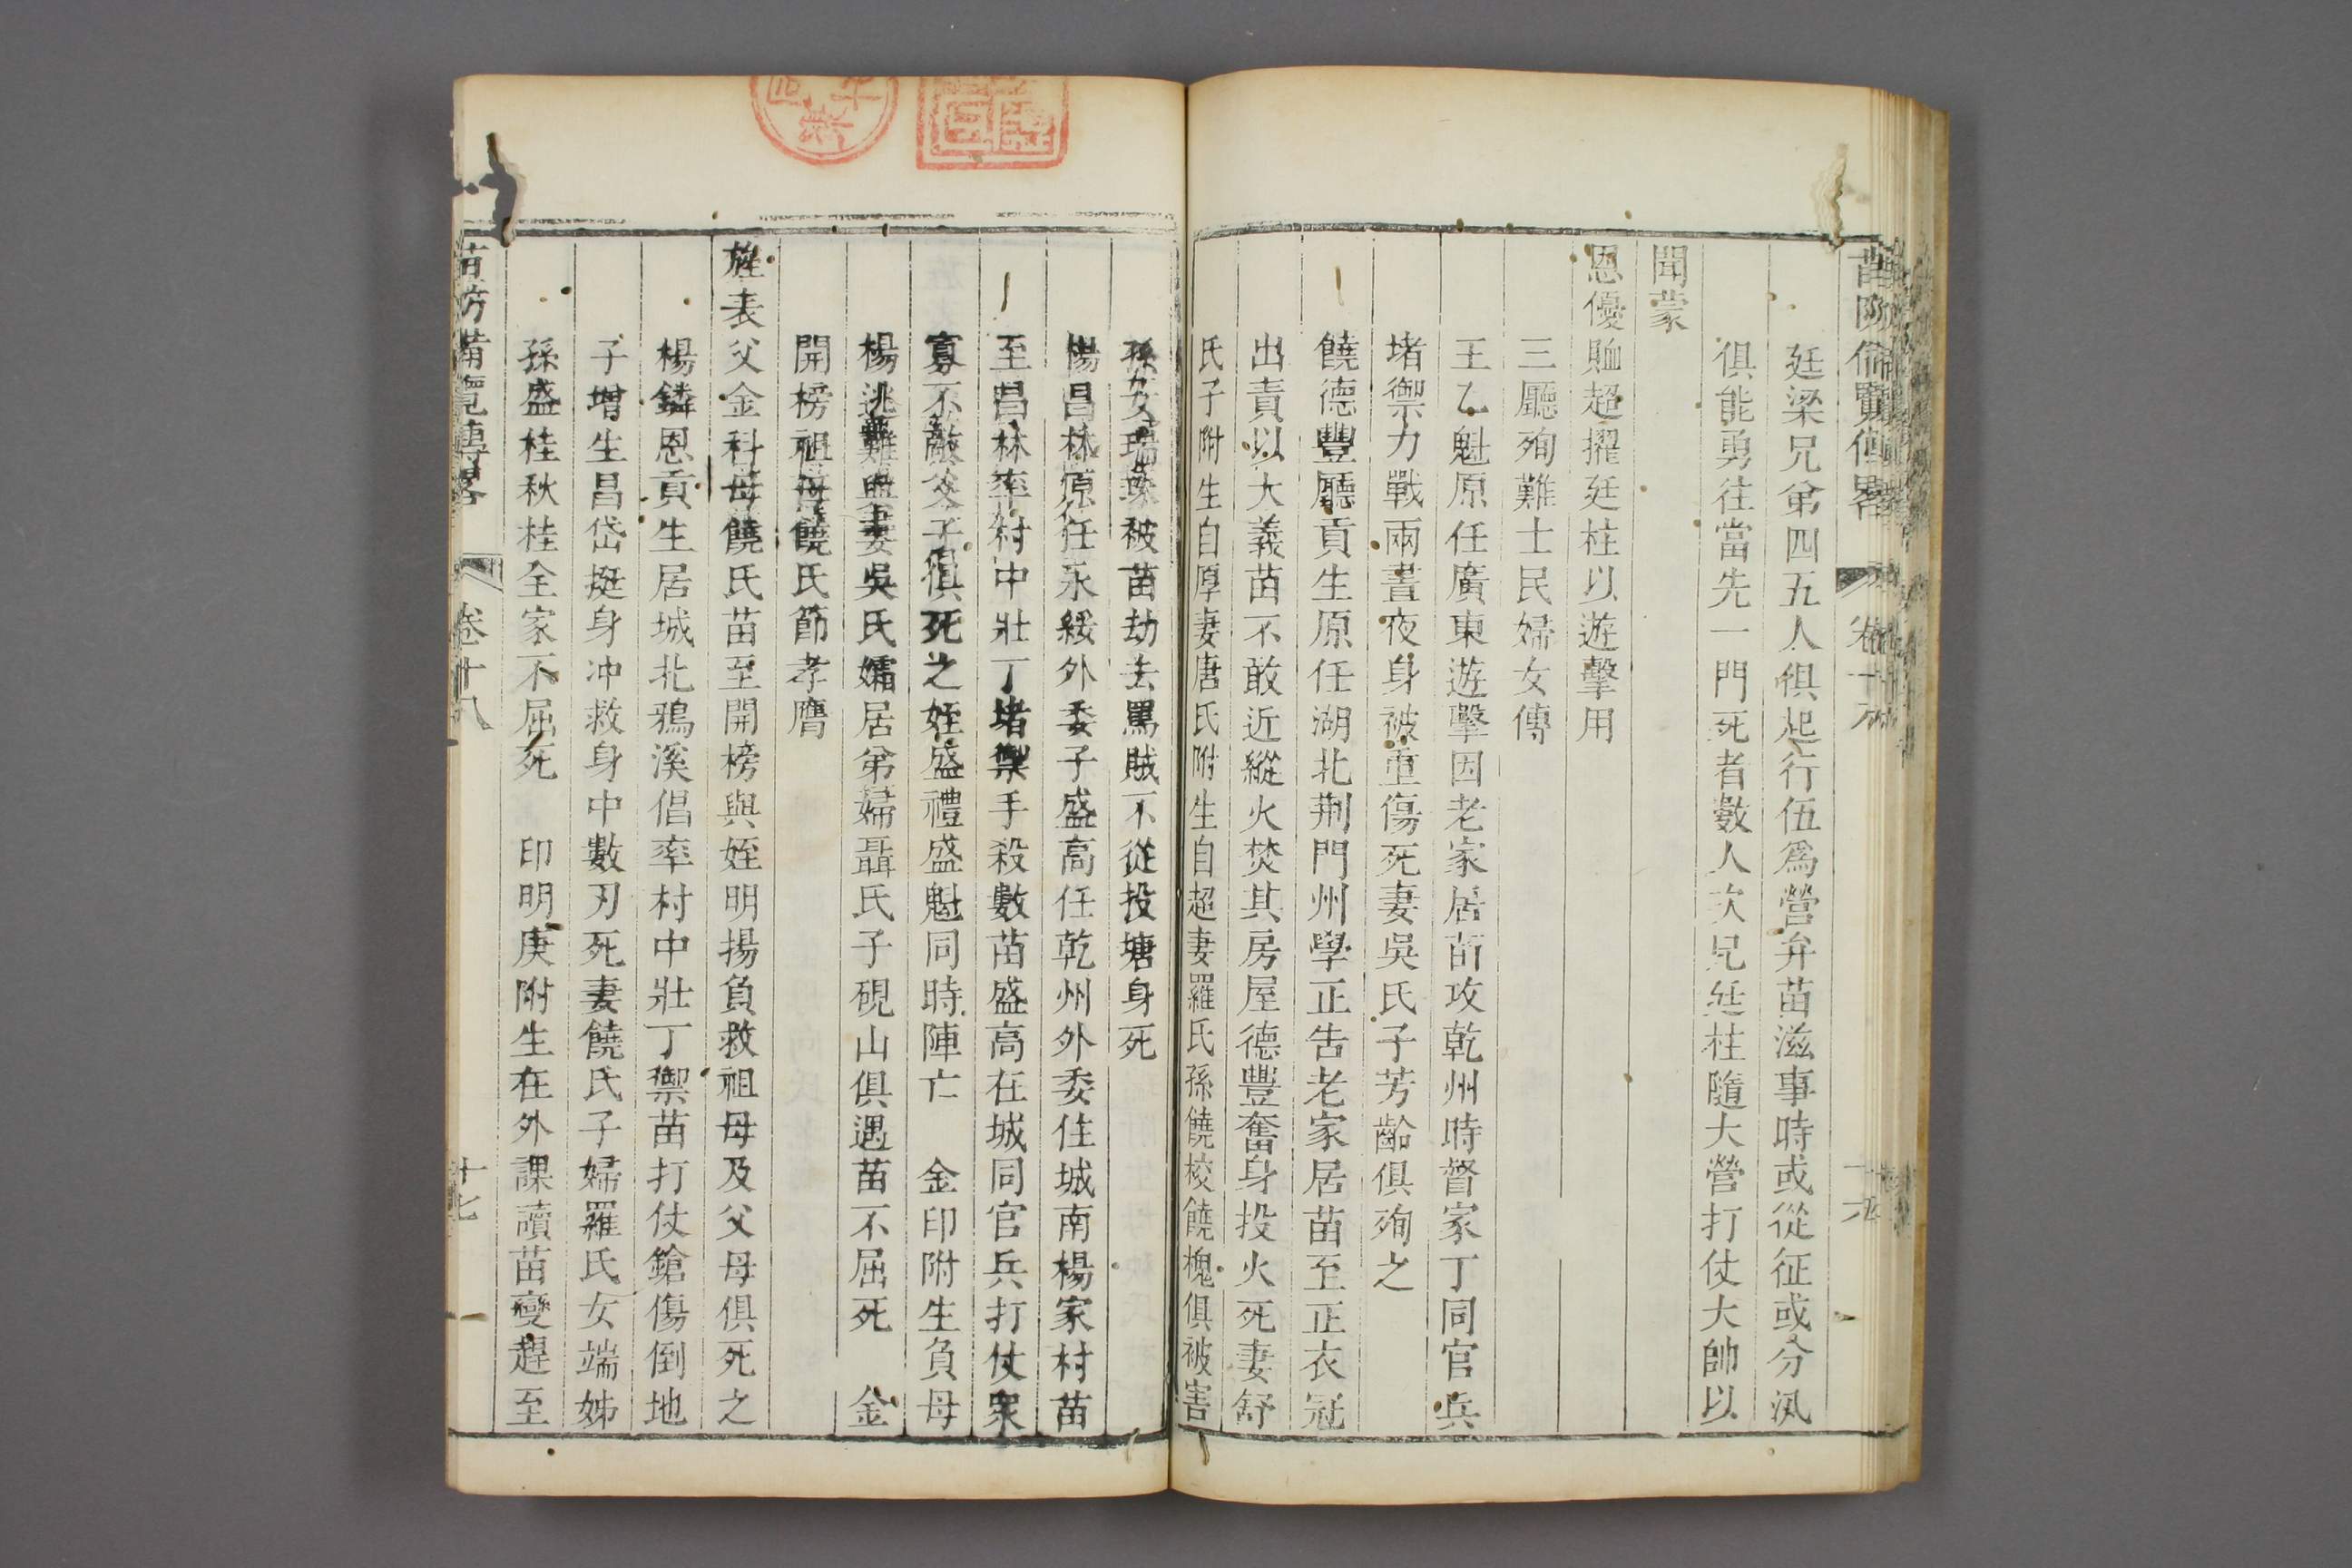 苗防備覽傳畧　卷十八　十六
廷梁兄弟四五人俱起行伍爲營弁苗滋事時或從征或分汛
俱能勇往當先一門死者數人次兄廷柱隨大營打仗大帥以
聞蒙
恩優賉超擢廷柱以遊擊用
三廳殉難士民婦女傳
王乙魁原任廣東遊擊因老家居苗攻乾州時督家丁同官兵
堵禦力戰兩晝夜身被重傷死妻吳氏子芳齡俱殉之
饒德豐廳貢生原任湖北荆門州學正告老家居苗至正衣冠
出責以大義苗不敢近縱火焚其房屋德豐奮身投火死妻舒
氏子附生自厚妻唐氏附生自超妻羅氏孫饒校饒槐俱被害
孫女瑞英被苗劫去罵賊不從投塘身死
楊昌林原任永綏外委子盛高任乾州外委住城南楊家村苗
至昌林率村中壯丁堵禦手殺數苗盛高在城同官兵打仗衆
寡不敵父子俱死之姪盛禮盛魁同時陣亡　金印附生負母
楊逃難與妻吳氏孀居弟婦聶氏子硯山俱遇苗不屈死　金
開榜祖母饒氏節孝膺
旌表父金科母饒氏苗至開榜與姪明揚負救祖母及父母俱死之
楊鏻恩貢生居城北鴉溪倡率村中壯丁禦苗打仗鎗傷倒地
子增生昌岱挺身冲救身中數刃死妻饒氏子婦羅氏女端姊
孫盛桂秋桂全家不屈死　印明庚附生在外課讀苗變趕至
苗防備覽傳畧　卷十八　十七